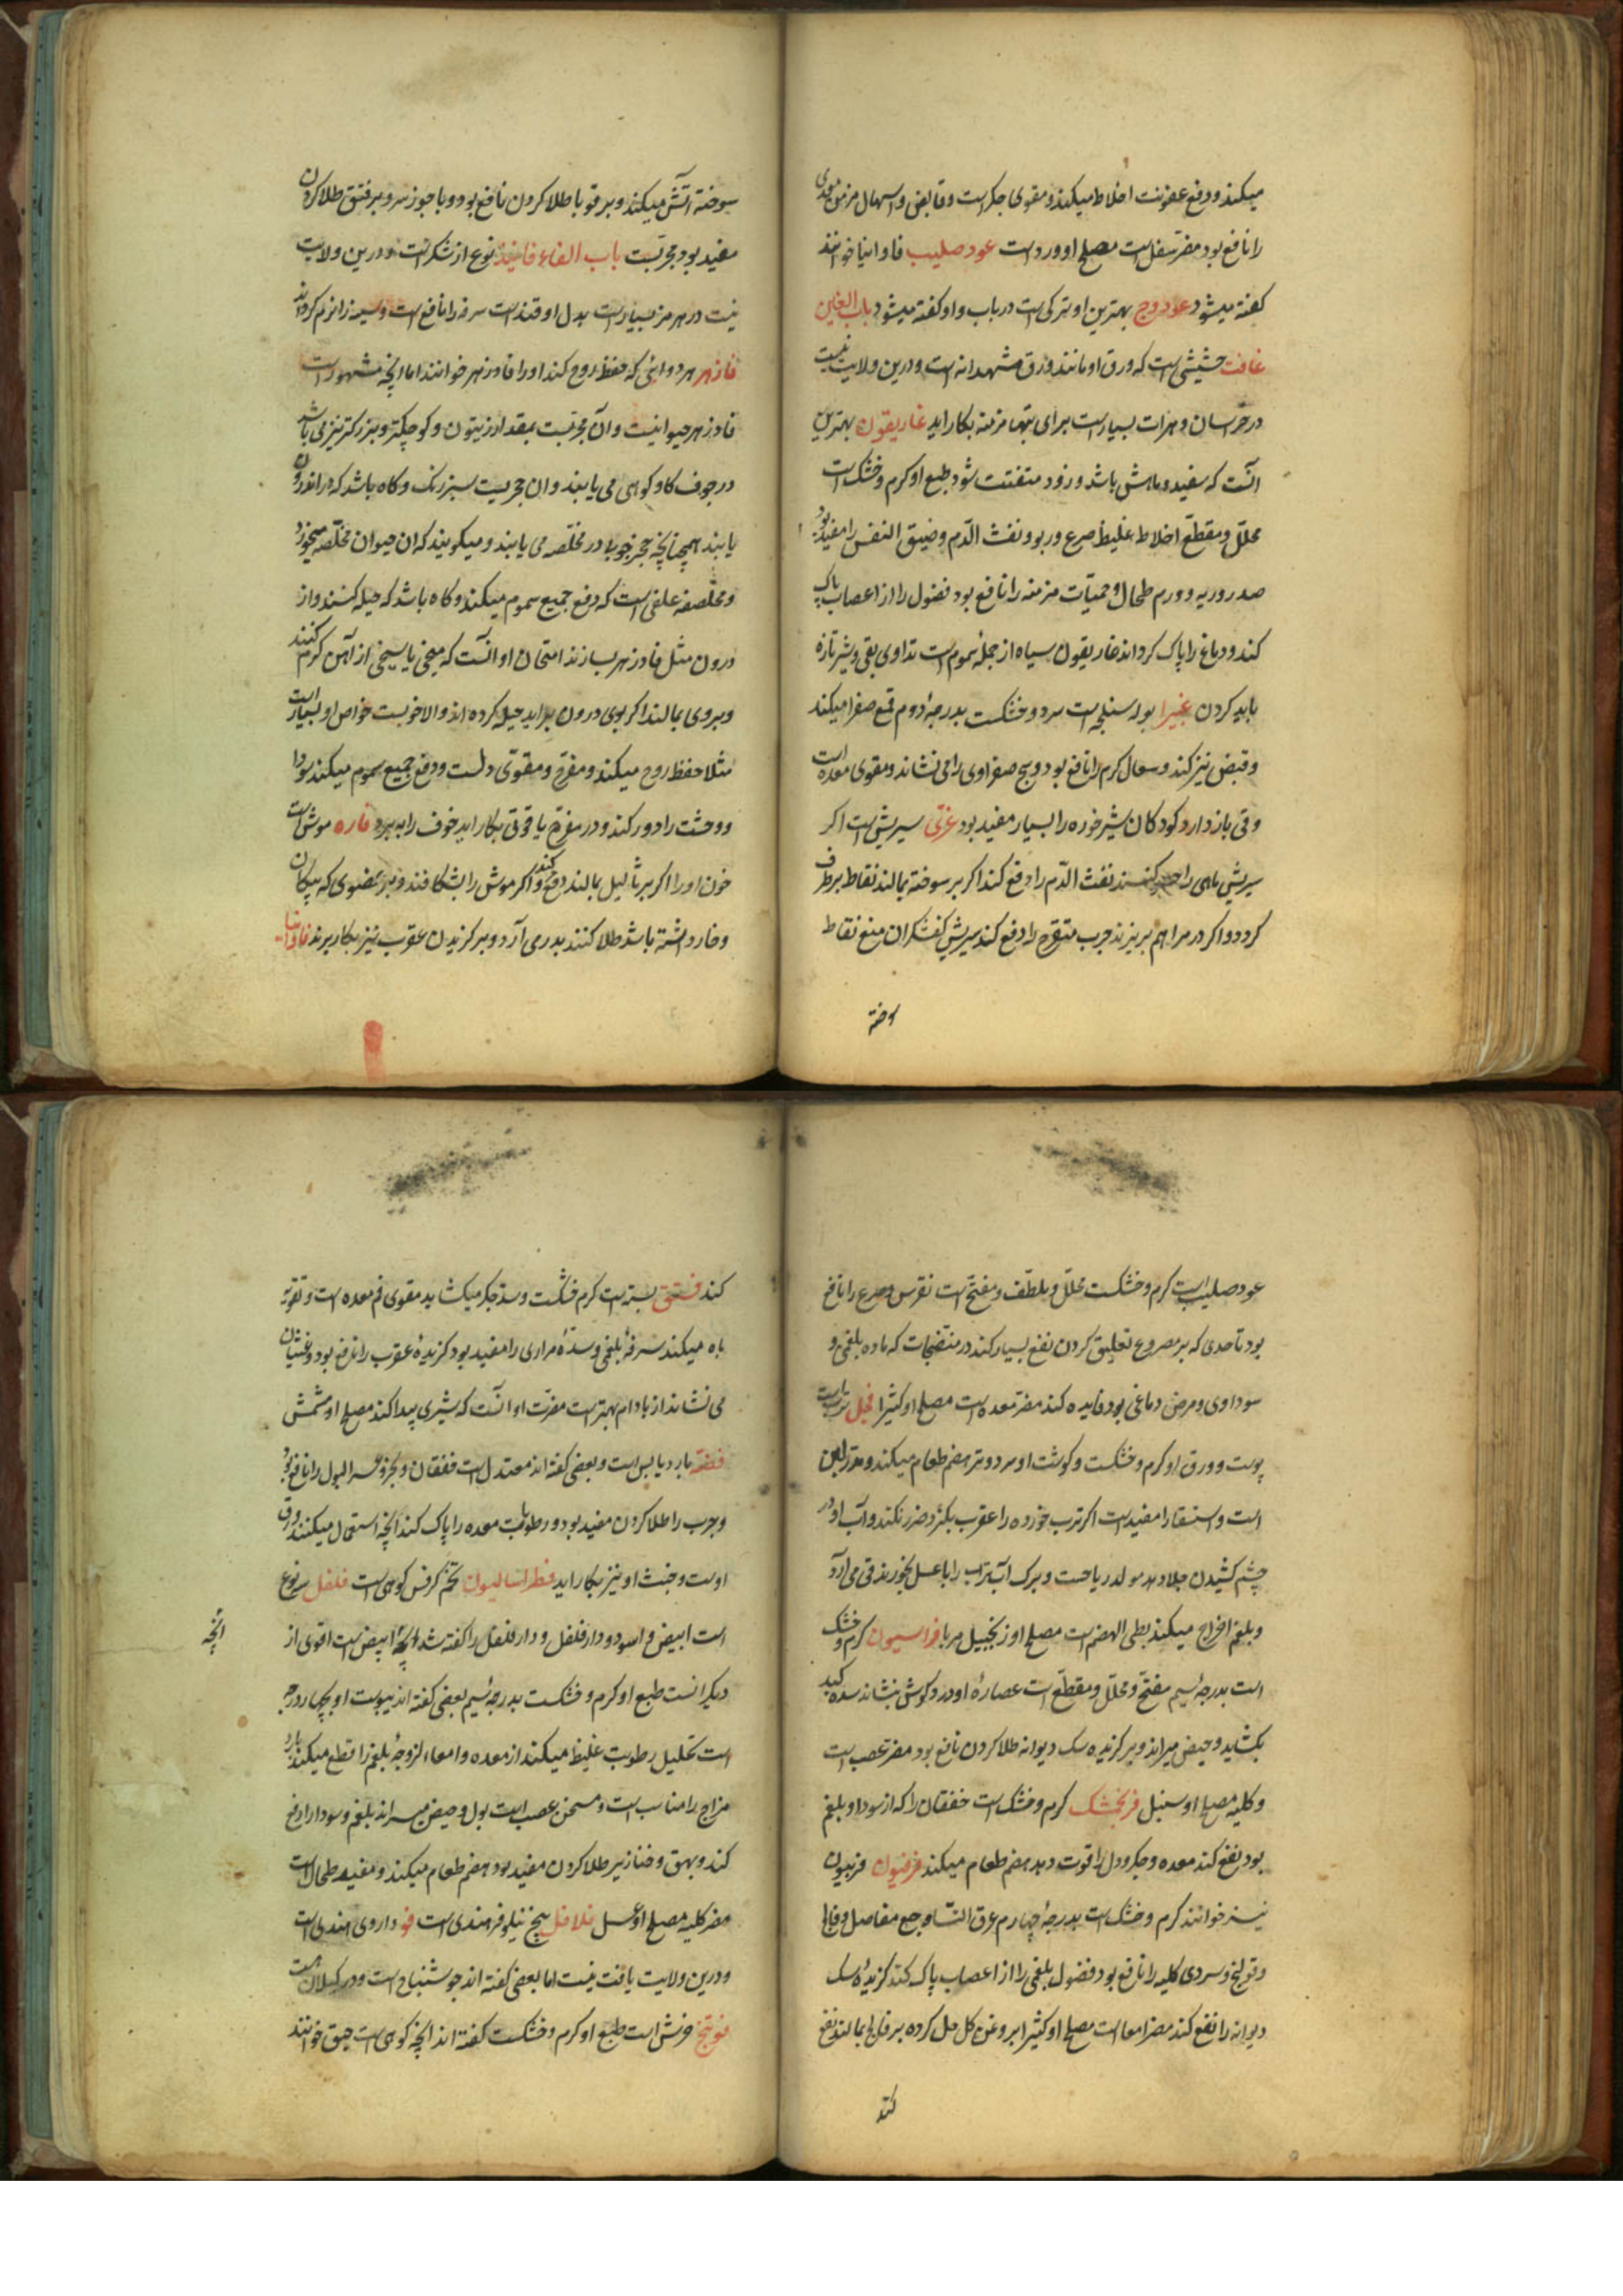 میکند و دفع عفونت اخلاط میکند و مقوی جکر است و قابض و اسهال مزمن معدی
را نافع بود مضر سفل است مصلح او ورد است عود صلیب فاوانیا خوانند
کفته میشود عود وج بهترین او ترکی است در باب واو کفته میشود باب الغین
غافت حشیشی است که ورق او مانند ورق شهدانه است و درین ولایت نیست
در خراسان و هرات بسیار است برای تبهاء مزمنه بکار اید غاریقون بهترین
انست که سفید و ماش باشد و زود متفتت شود طبع او کرم و خشک است
محلل و مقطع اخلاط غلیظ صرع و ربو و نفث الدم و ضیق النفس را مفید بود
صدر و ریه و ورم طحال و حمیات مزمنه را نافع بود فضول را از اعصاب پاک
کند و دماغ را پاک کرداند غاریقون سیاه از جمله سموم است تداوی بقی و شیر تازه
باید کردن غبیرا بوله سنجد است سرد و خشکست بدرجه دوم قمع صفرا میکند
و قبض نیز کند و سعال کرم را نافع بود و هیج صفراوی را می نشاند و مقوی معده است
و قی باز دارد کودکان شیر خوره را بسیار مفید بود غری سیریش است اکر
سیریش ماهی را کنند نفث الدم را دفع کند اکر بر سوخته بمالند نقاط برطرف
کردد و اکر در مراهم بریزند جرب متقرح را دفع کند سیریش کفشکران منع نقاط
سوخته
سوخته آتش میکند و بر قوبا طلا کردن نافع بود و با جوز سرو بر فتق طلا کردن
مفید بود مجربست باب الفاء فانیذ نوع از شکر است و درین ولایت
نیست در هرمز بسیار است بدل او قند است سرفه را نافع است و سینه را نرم کرداند
فازهر هر دوائی که حفظ روح کند او را فادزهر خوانند اما انچه مشهور است
فادزهر حیوانیست و آن حجریست بمقدار زیتون و کوچکتر و بزرکتر نیز می باشد
در جوف کاو کوهی می یابند و ان حجریست سبز رنک و کاه باشد که در اندرون
یابند همچنانچه حجر خوب را در مخلصه می یابند و میکویند که ان حیوان مخلصه میخورد
و مخلصه علفی است که دفع جمیع سموم میکند و کاه باشد که حیله کنند و از
درون مثل فادزهر بسازند امتحان او انست که میخی یا سیخی از آهن کرم کنند
و بروی بمالند اکر بوی درون براید حیله کرده اند و الا خوبست خواص او بسیار است
مثلا حفظ روح میکند و مفرح و مقوی دلست و دفع جمیع سموم میکند سودا
و وحشت را دور کند و در مفرح یاقوتی بکار اید خوف را ببرد فاره موش است
خون او را اکر بر ثالیل بمالند دفع کند و اکر موش را بشکافند و بر عضوی که پیکان
و خار داشته باشد طلا کنند بدر می آرد و بر کزیدن عقرب نیز بکار برند فاوانیا
عود صلیب است کرم و خشکست محلل و ملطف و مفتح است نقرس و صرع را نافع
بود تا حدی که بر مصروع تعلیق کردن نفع بسیار کند در منضجات که ماده بلغمی و
سوداوی و مرض دماغی بود فایده کند مضر معده است مصلح او کثیرا فجل ترب است
پوست و ورق او کرم و خشکست و کوشت او سرد و تر هضم طعام میکند و مدر لبن
است و استسقا را مفید است اکر ترب خورده را عقرب بکزد ضرر نکند و آب او در
چشم کشیدن جلا دهد مولد ریاحست و برک آب ترب را با عسل بخورند قی می آرد
و بلغم اخراج میکند بطی الهضم است مصلح او زنجبیل مربا فراسیون کرم و خشک
است بدرجه سیم مفتح و محلل و مقطع است عصاره او درد کوش بنشاند سده کبد
بکشاید و حیض میراند و بر کزیده سک دیوانه طلا کردن نافع بود مضر عصب است
و کلیه مصلح او سنبل فرنجمشک کرم و خشک است خفقان را که از سودا و بلغم
بود نفع کند معده و جکر و دل را قوت دهد هضم طعام میکند فرفیون فربیون
نیز خوانند کرم و خشک است بدرجه چهارم عرق النساء وجع مفاصل و فالج
و قولنج و سردی کلیه را نافع بود فضول بلغمی را از اعصاب پاک کند کزیده سک
دیوانه را نفع کند مضر امعا است مصلح او کثیرا بروغن کل حل کرده بر فالج بمالند نفع
کند
کند فستق پسته است کرم و خشکست و سده جکر میکشاید مقوی فم معده است و تقویه
باه میکند سرفه بلغمی و سده مراری را مفید بود کزیده عقرب را نافع بود و غثیان
می نشاند از بادام بهتر است مضرت او انست که شری پیدا کند مصلح او مشمش
فضه بارد یابس است و بعضی کفته اند معتدل است خفقان و بخر و عسر البول را نافع بود
و جرب را طلا کردن مفید بود و رطوبات معده را پاک کند انچه استعمال میکنند ورق
اوست و خبث او نیز بکار اید فطراسالیون تخم کرفس کوهی است فلفل سه نوع
است ابیض و اسود و دارفلفل و دارفلفل را کفته شد انچه ابیض است اقوی از
انچه
دیکرانست طبع او کرم و خشکست بدرجه سیم بعضی کفته اند یبوست او بچهار درجه
است تحلیل رطوبت غلیظ میکند از معده و امعاء لزوجه بلغم را قطع میکند بارد
مزاج را مناسب است و مسخن عصب است بول و حیض میراند بلغم و سودا را دفع
کند و بهق و خنازیر طلا کردن مفید بود هضم طعام میکند و مفید طحال است
مضر کلیه مصلح او عسل فلافل بیخ نیلوفر هندی است فو داروی هندی است
و درین ولایت یافت نیست اما بعضی کفته اند جوشنباح است و در کیلان هست
فوتنج خرنش است طبع او کرم و خشکست کفته اند انچه کوهی است حبق خوانند